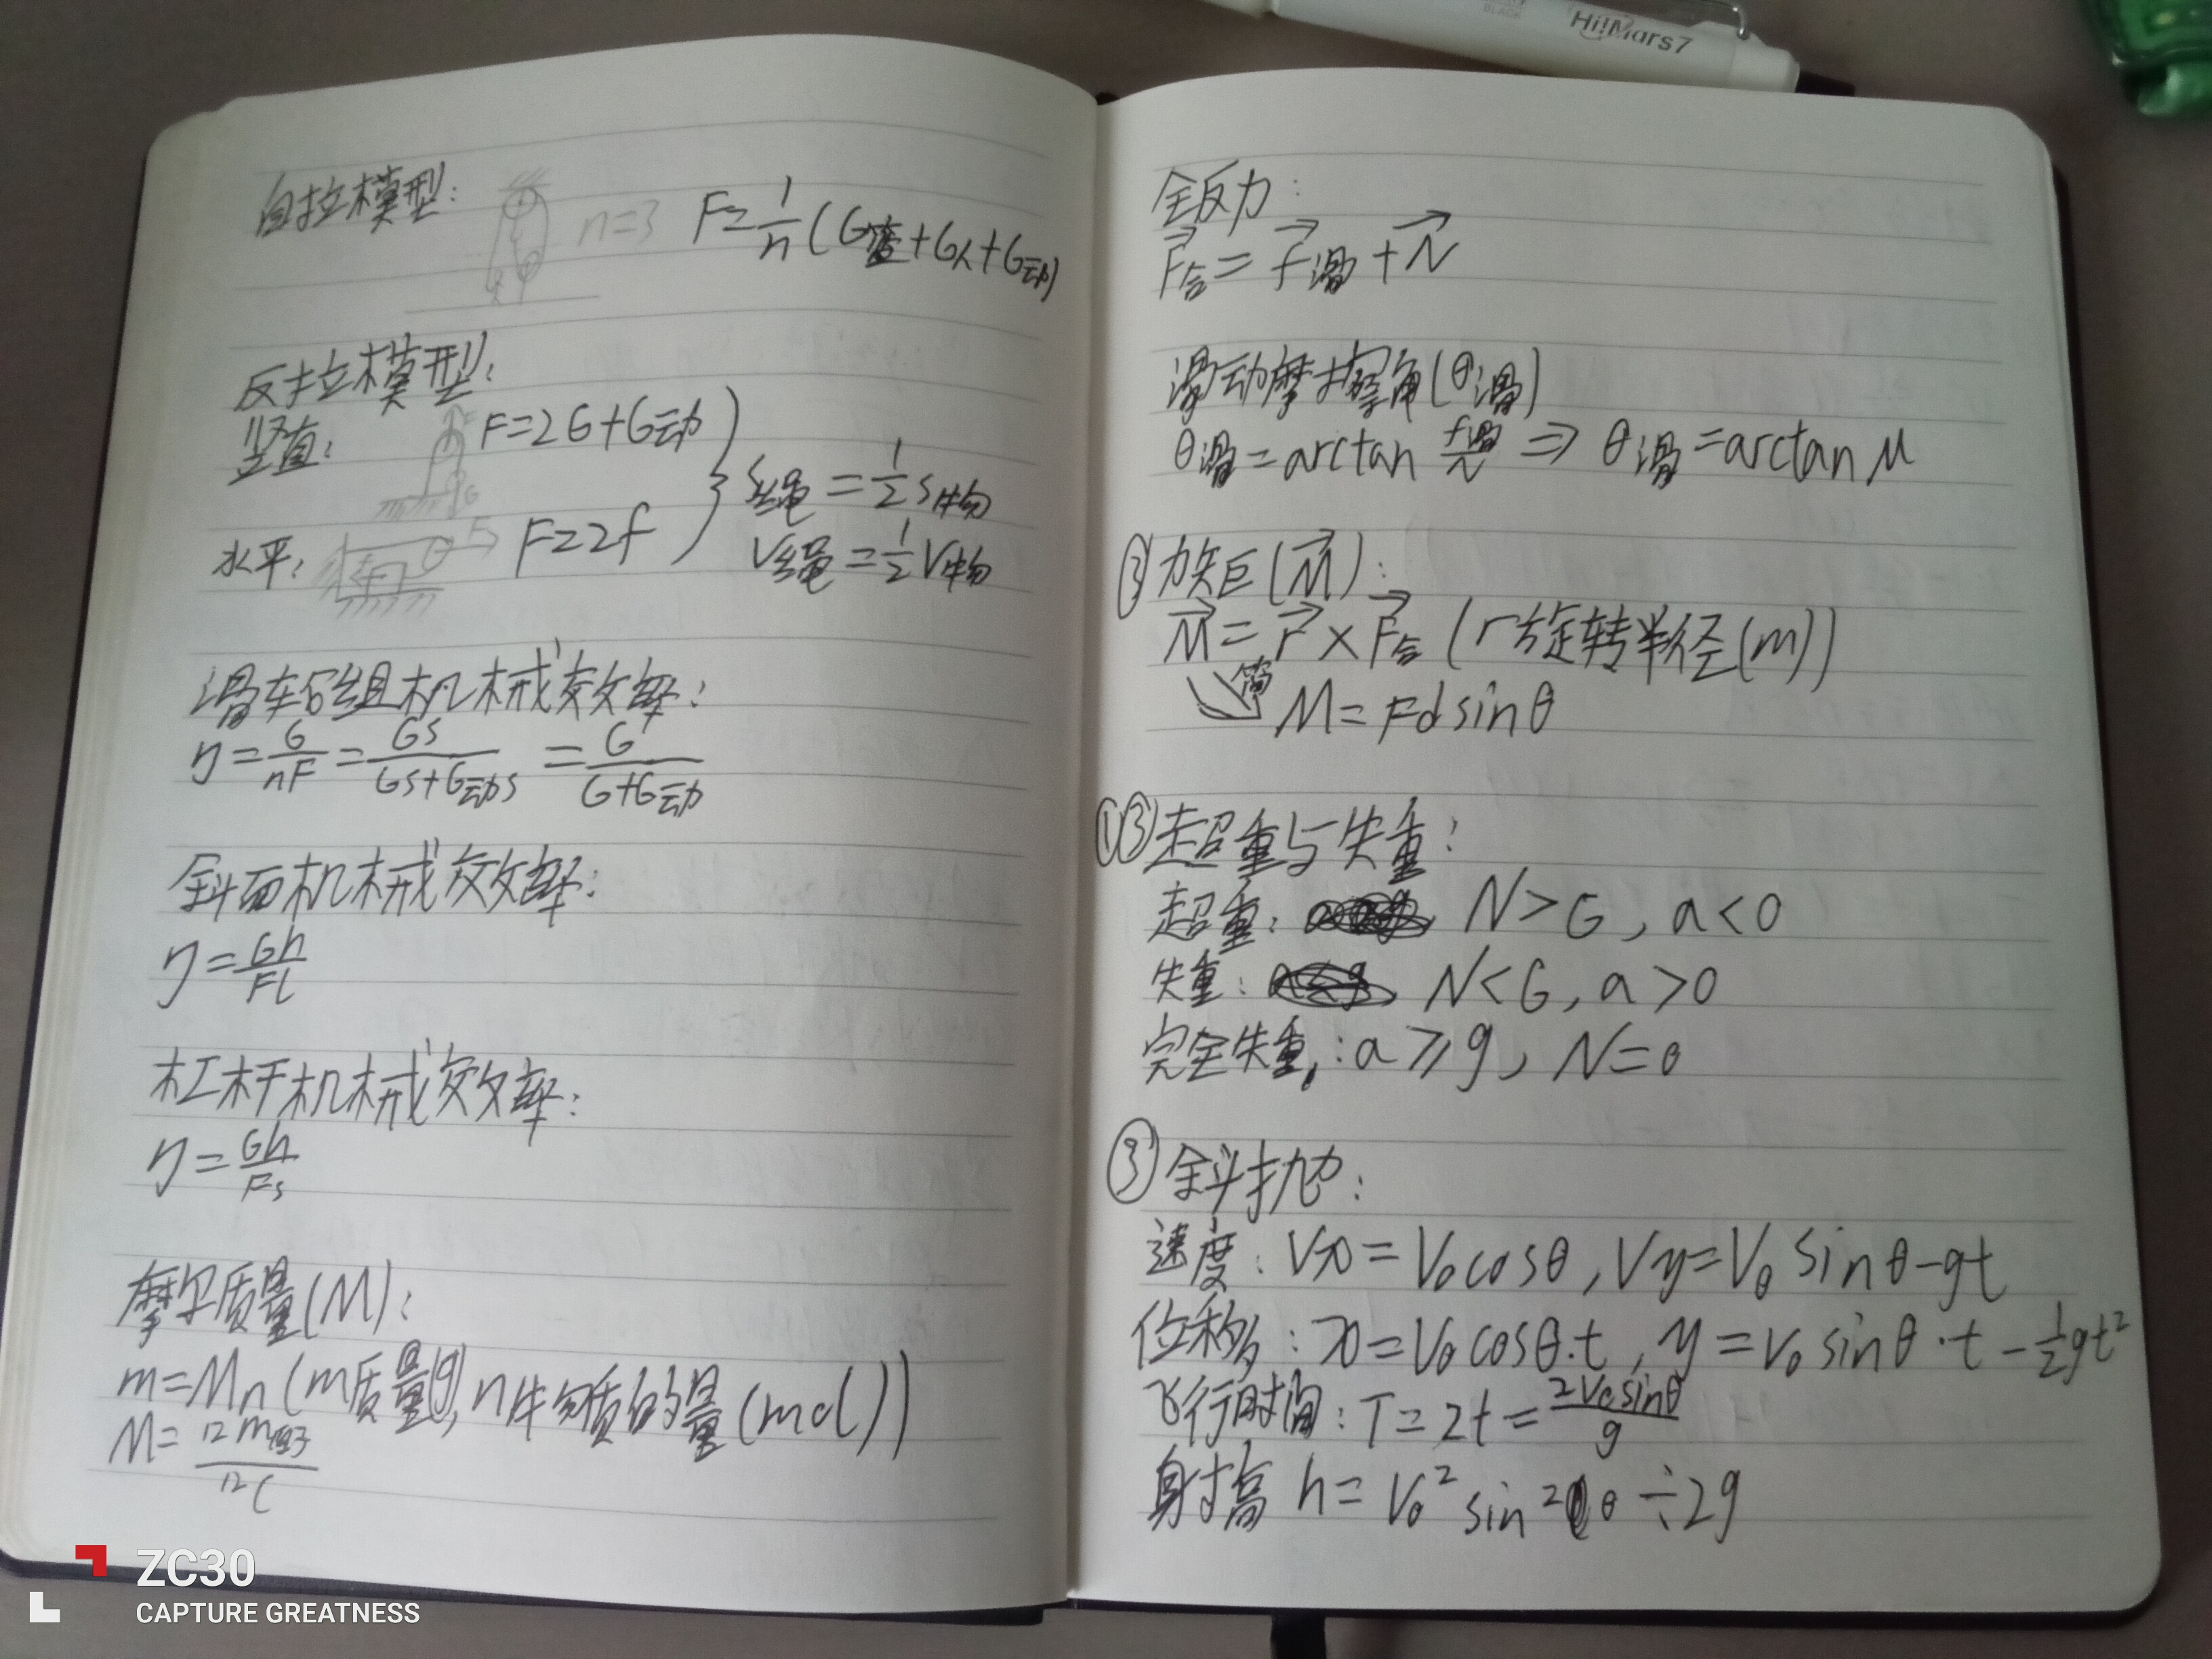 BLACK
Hi!Mars7
自拉模型:
n=3
F=1/n(G篮+G人+G动)
反拉模型:
竖直: F=2G+G动
S绳=1/2 S物
水平: F=2f
V绳=1/2 V物
滑轮组机械效率:
η=G/nF=Gs/(Gs+G动s)=G/(G+G动)
斜面机械效率:
η=Gh/Fl
杠杆机械效率:
η=Gh/Fs
摩尔质量(M):
m=Mn(m质量(g),n物质的量(mol))
M=
12C
全反力:
F合=f滑+N
滑动摩擦角(θ滑)
θ滑=arctan f滑/N ⇒ θ滑=arctan μ
③力矩(M):
M=r×F合(r旋转半径(m))
简
M=Fdsinθ
①③超重与失重:
超重: N>G,a<0
失重: N<G,a>0
完全失重:a≥g,N=0
③斜抛:
速度:Vx=V0cosθ,Vy=V0sinθ-gt
位移:x=V0cosθ·t,y=V0sinθ·t-1/2gt²
飞行时间:T=2t=2V0sinθ/g
射高 h=V0²sin²θ÷2g
ZC30
CAPTURE GREATNESS